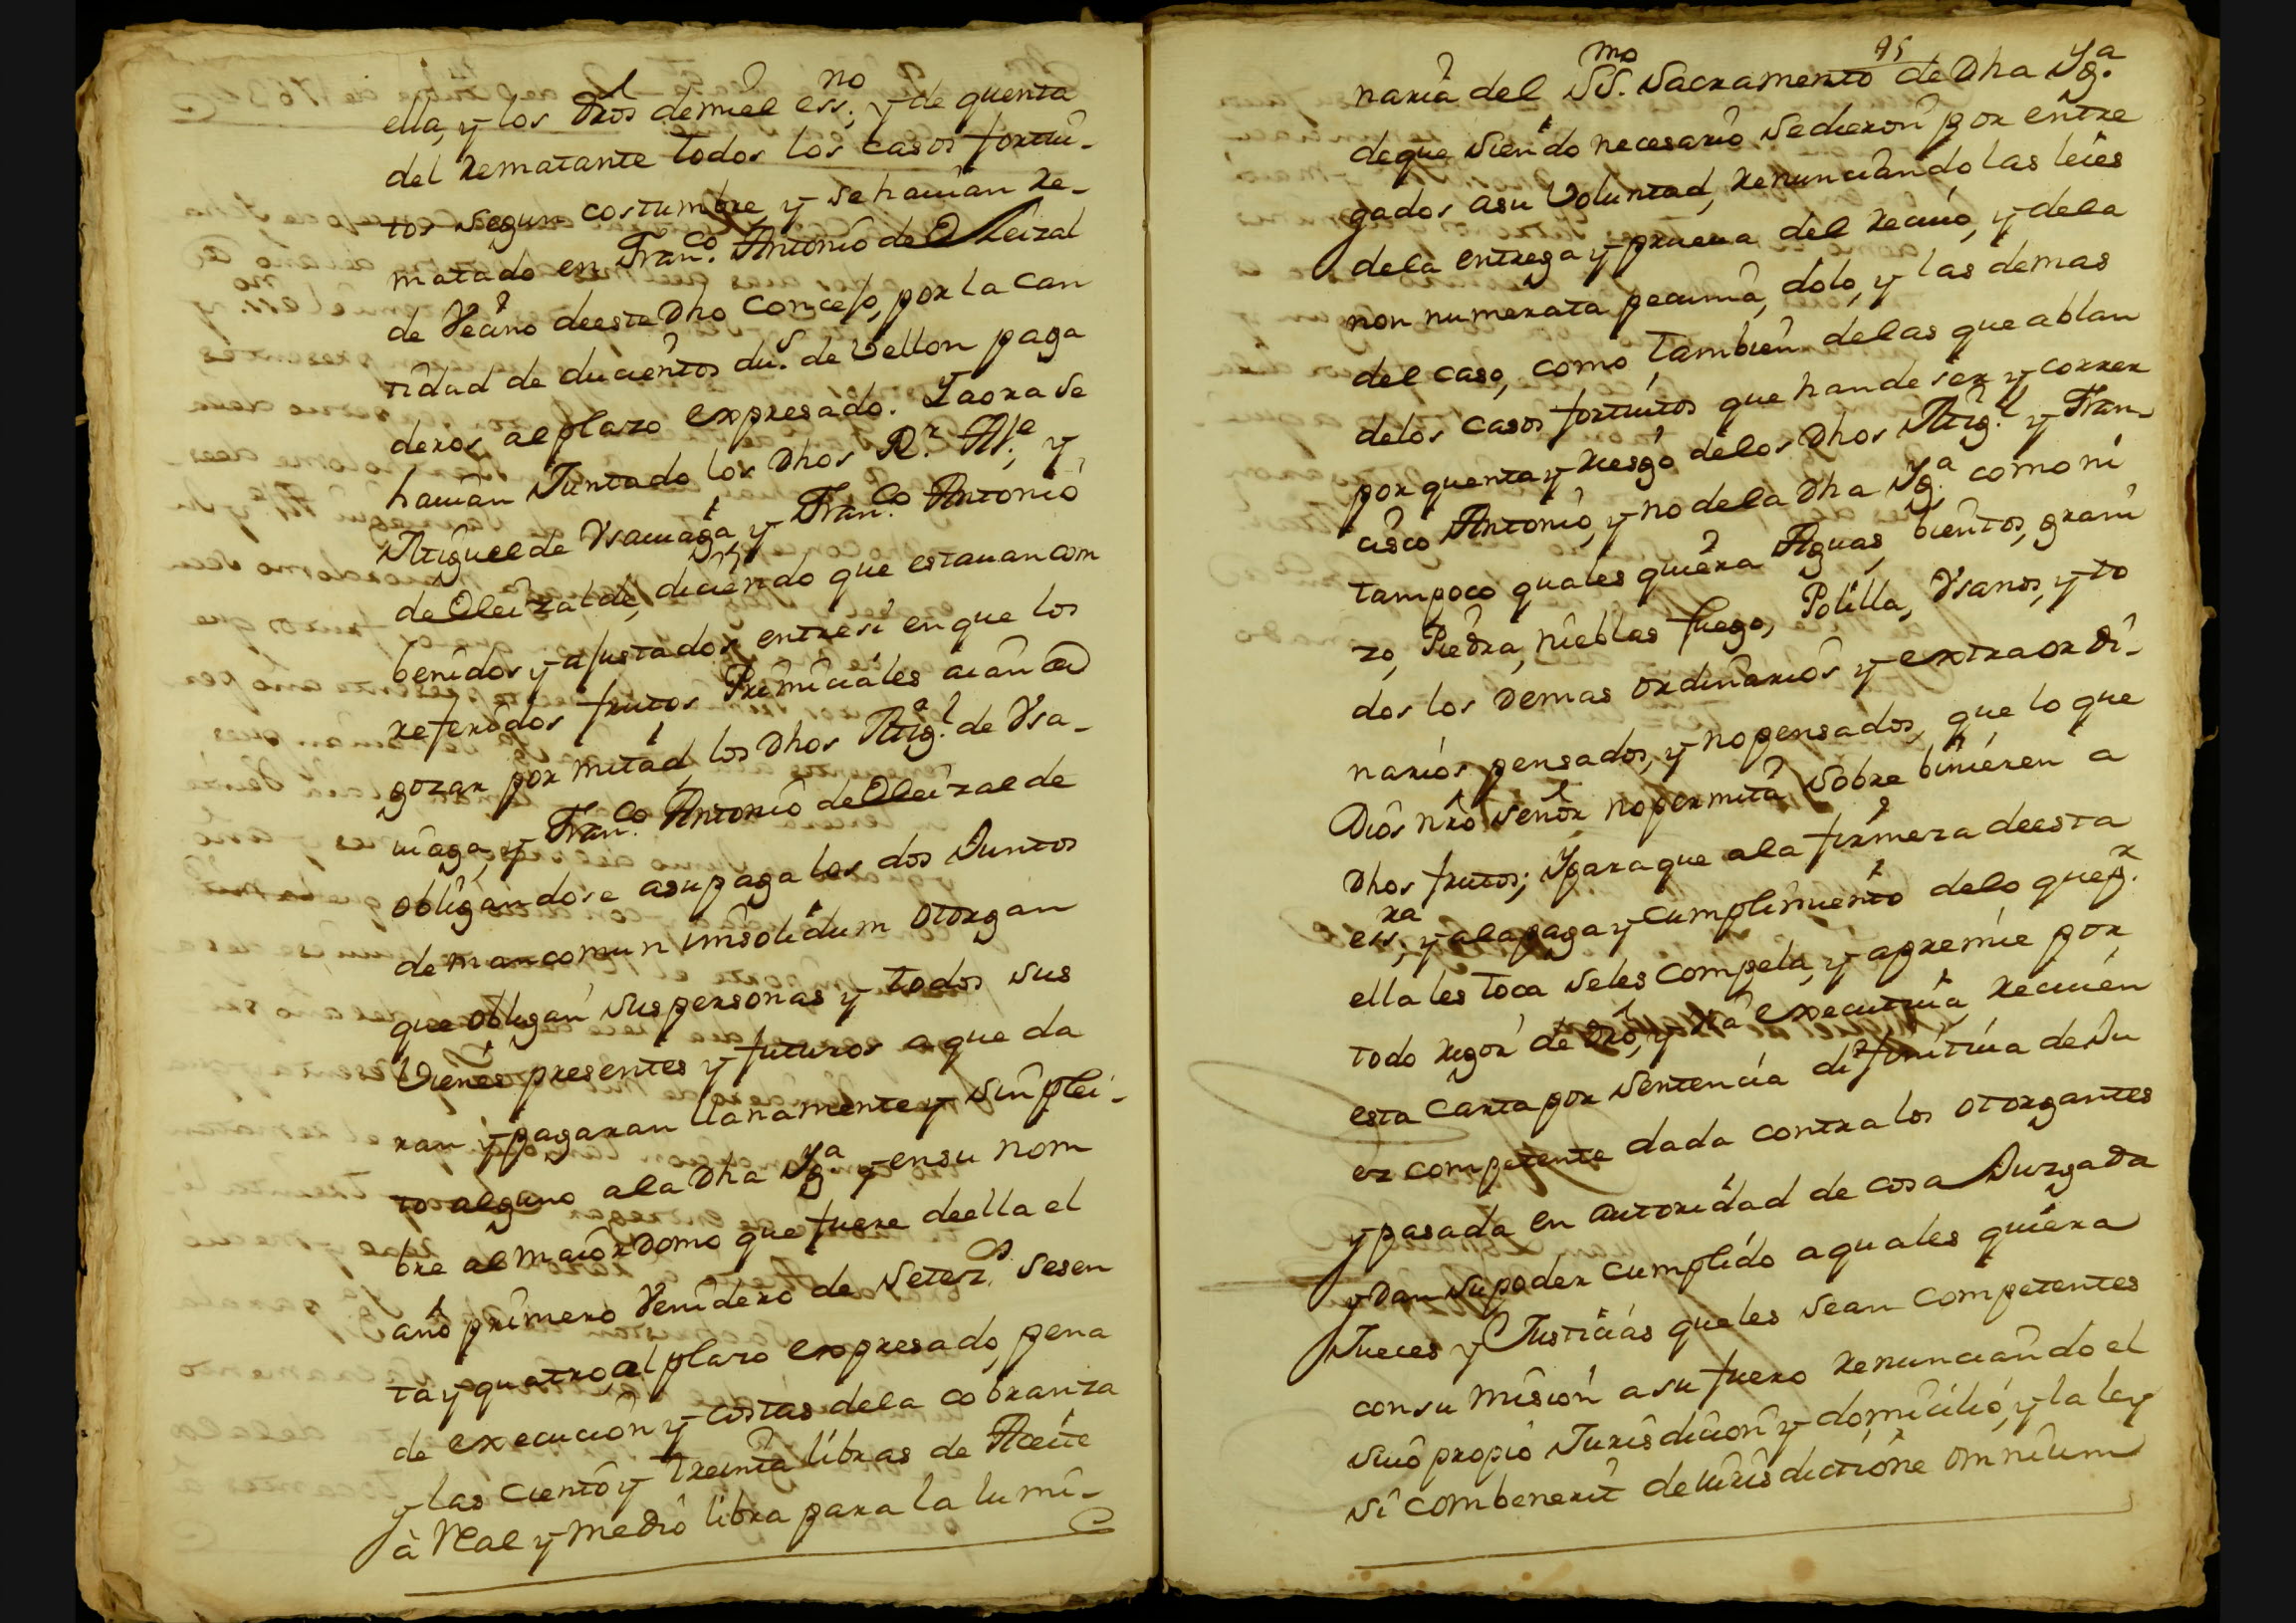 ella, y los Dros demiel ess.no; y de quenta
del Rematante todos los casos fortui-
tos segun costumbre, y se hauian Re-
matado en Fran.co Antonio de Oleizal
de Vecino deeste Dho Concejo, por la can
tidad de ducientos du.s de Vellon paga
deros al plazo expresado. Y aora se
hauian Juntado los Dhos R.r Alfe, y
Miguel de Vsauiaga, y Fran.co Antonio
de Oleizalde, diciendo que estauan com
benidos y ajustados entresi en que los
referidos frutos Primiciales aian de
gozar por mitad los Dhos Mig.l de Vsa-
uiaga, y Fran.co Antonio de Oleizalde
obligandose asu paga los dos Juntos
demancomun imsolidum otorgan
que obligan sus personas y todos sus
Vienes presentes y futuros a que da
ran y pagaran llanamente y sin plei-
to alguno ala Dha Yg.a y ensu nom
bre al maiordomo que fuere deella el
año primero Venidero de Setez.s sesen
ta y quatro, al plazo expresado, pena
de execucion y costas dela cobranza
y las ciento y treinta libras de Aceite
à Real y medio libra para la lumi-
95
naria del SS.mo Sacramento de Dha Yg.a
deque siendo necesario sedieron por entre
gados asu Voluntad, Renunciando las leies
dela entrega y prueua del Reciuo, y dela
non numerata pecunia, dolo, y las demas
del caso, como tambien delas que ablan
delos casos fortuitos que hande ser y correr
por quenta y Riesgo delos Dhos Mig.l y Fran-
cisco Antonio, y no dela Dha Yg.a como ni
tampoco quales quiera Aguas, bientos, grani
zo, Piedra, nieblas fuego, Polilla, Vsanos, y to
dos los Demas ordinarios y extraordi-
narios pensados, y no pensados, que lo que
Dios nro señor no permita sobre binieren a
Dhos frutos; Y para que ala firmeza deesta
ess.ra, y ala paga y cumplimiento delo que p.r
ella les toca seles compela, y apremie por
todo rigor de Dro, y via executiua, Reciuen
esta Carta por sentencia difinitiua de Ju
ez competente dada contra los otorgantes
y pasada en autoridad de cosa Juzgada
y Dan su poder cumplido a quales quiera
Jueces y Justicias quales sean competentes
con su mision a su fuero Renunciando el
suio propio Jurisdicion y domicilio, y la ley
si combenerit de iurisdictione omnium